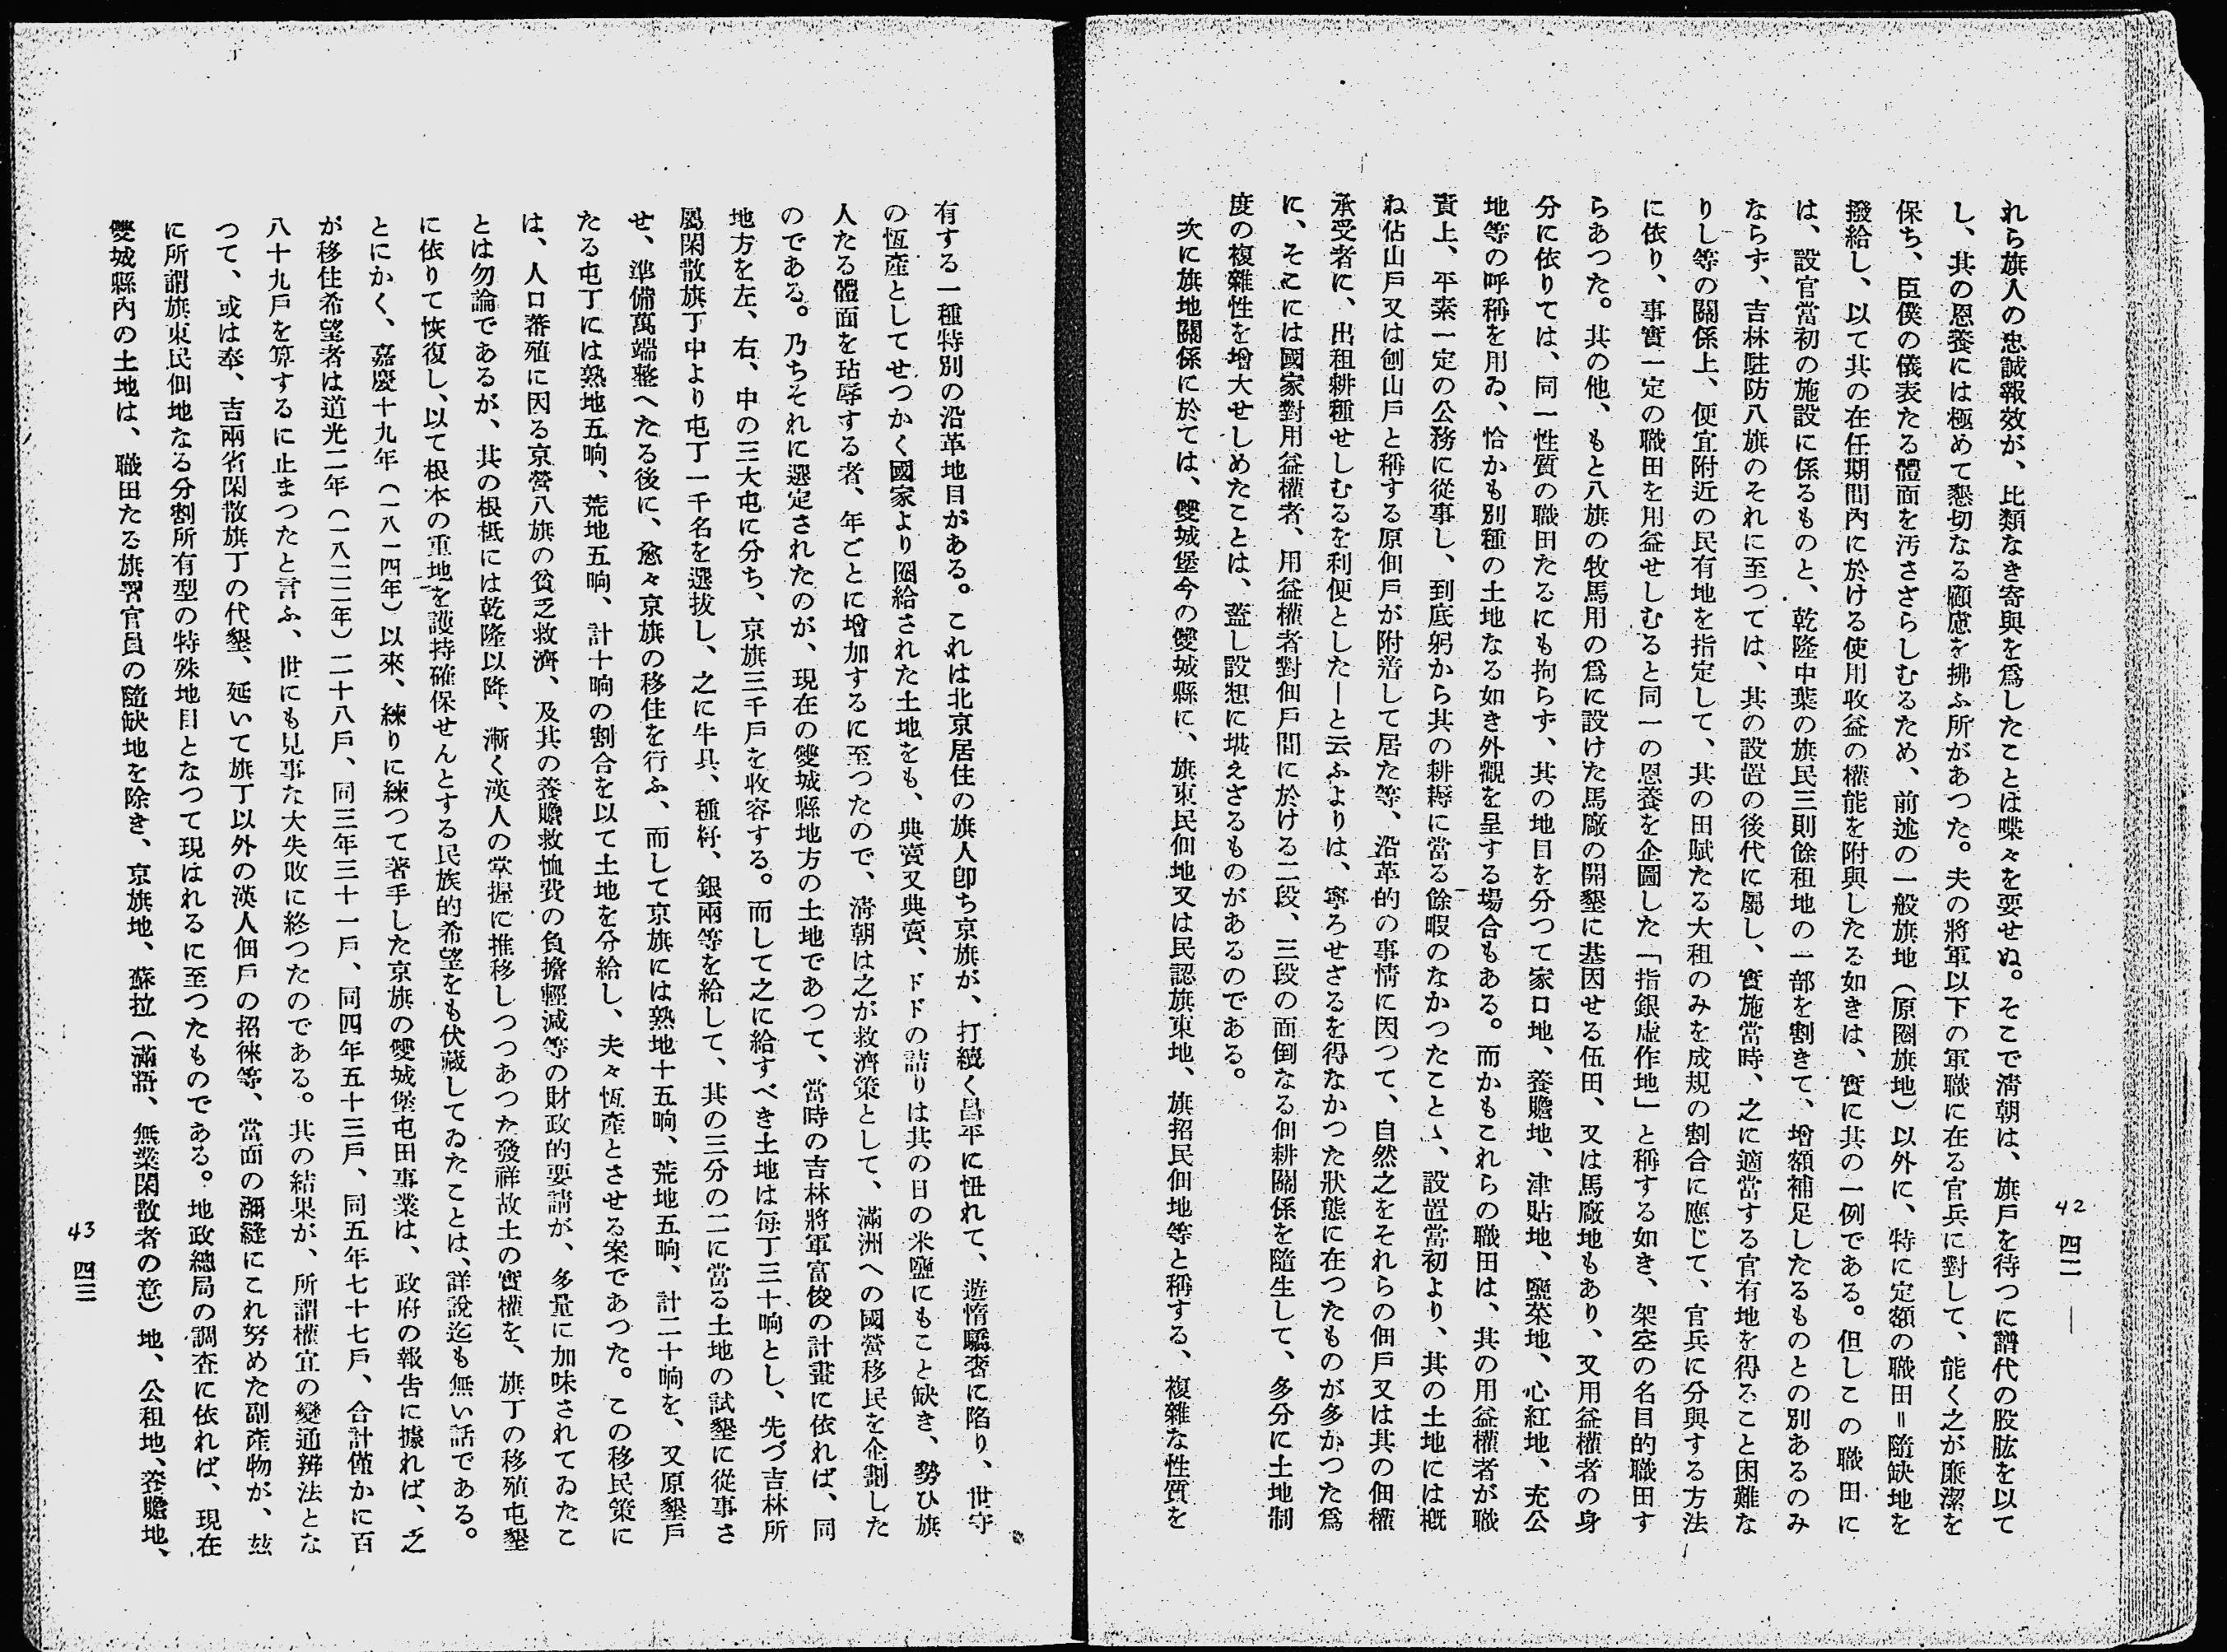 42 四二
れら旗人の忠誠報效が、比類なき寄與を爲したことは喋々を要せぬ。そこで淸朝は、旗戶を待つに譜代の股肱を以て
し、其の恩養には極めて懇切なる顧慮を拂ふ所があつた。夫の將軍以下の軍職に在る官兵に對して、能く之が廉潔を
保ち、臣僕の儀表たる體面を汚さざらしむるため、前述の一般旗地（原圈旗地）以外に、特に定額の職田＝隨缺地を
撥給し、以て其の在任期間內に於ける使用收益の權能を附與したる如きは、實に其の一例である。但しこの職田に
は、設官當初の施設に係るものと、乾隆中葉の旗民三則餘租地の一部を割きて、增額補足したるものとの別あるのみ
ならず、吉林駐防八旗のそれに至つては、其の設置の後代に屬し、實施當時、之に適當する官有地を得ること困難な
りし等の關係上、便宜附近の民有地を指定して、其の田賦たる大租のみを成規の割合に應じて、官兵に分與する方法
に依り、事實一定の職田を用益せしむると同一の恩養を企圖した「指銀虛作地」と稱する如き、架空の名目的職田す
らあつた。其の他、もと八旗の牧馬用の爲に設けた馬廠の開墾に基因せる伍田、又は馬廠地もあり、又用益權者の身
分に依りては、同一性質の職田たるにも拘らず、其の地目を分つて家口地、養贍地、津貼地、鹽菜地、心紅地、充公
地等の呼稱を用ゐ、恰かも別種の土地なる如き外觀を呈する場合もある。而かもこれらの職田は、其の用益權者が職
責上、平素一定の公務に從事し、到底躬から其の耕耨に當る餘暇のなかつたことゝ、設置當初より、其の土地には槪
ね佔山戶又は刨山戶と稱する原佃戶が附着して居た等、沿革的の事情に因つて、自然之をそれらの佃戶又は其の佃權
承受者に、出租耕種せしむるを利便とした―と云ふよりは、寧ろせざるを得なかつた狀態に在つたものが多かつた爲
に、そこには國家對用益權者、用益權者對佃戶間に於ける二段、三段の面倒なる佃耕關係を隨生して、多分に土地制
度の複雜性を增大せしめたことは、蓋し設想に堪えざるものがあるのである。
次に旗地關係に於ては、雙城堡今の雙城縣に、旗東民佃地又は民認旗東地、旗招民佃地等と稱する、複雜な性質を
有する一種特別の沿革地目がある。これは北京居住の旗人卽ち京旗が、打續く昌平に忸れて、遊惰驕奢に陷り、世守
の恆產としてせつかく國家より圈給された土地をも、典賣又典賣、ドドの詰りは其の日の米鹽にもこと缺き、勢ひ旗
人たる體面を玷辱する者、年ごとに增加するに至つたので、淸朝は之が救濟策として、滿洲への國營移民を企劃した
のである。乃ちそれに選定されたのが、現在の雙城縣地方の土地であつて、當時の吉林將軍富俊の計畫に依れば、同
地方を左、右、中の三大屯に分ち、京旗三千戶を收容する。而して之に給すべき土地は每丁三十晌とし、先づ吉林所
屬閑散旗丁中より屯丁一千名を選拔し、之に牛具、種籽、銀兩等を給して、其の三分の二に當る土地の試墾に從事さ
せ、準備萬端整へたる後に、愈々京旗の移住を行ふ、而して京旗には熟地十五晌、荒地五晌、計二十晌を、又原墾戶
たる屯丁には熟地五晌、荒地五晌、計十晌の割合を以て土地を分給し、夫々恆產とさせる案であつた。この移民策に
は、人口蕃殖に因る京營八旗の貧乏救濟、及其の養贍救恤費の負擔輕減等の財政的要請が、多量に加味されてゐたこ
とは勿論であるが、其の根柢には乾隆以降、漸く漢人の掌握に推移しつつあつた發祥故土の實權を、旗丁の移殖屯墾
に依りて恢復し、以て根本の重地を護持確保せんとする民族的希望をも伏藏してゐたことは、詳說迄も無い話である。
とにかく、嘉慶十九年（一八一四年）以來、練りに練つて著手した京旗の雙城堡屯田事業は、政府の報告に據れば、之
が移住希望者は道光二年（一八二二年）二十八戶、同三年三十一戶、同四年五十三戶、同五年七十七戶、合計僅かに百
八十九戶を算するに止まつたと言ふ、世にも見事な大失敗に終つたのである。其の結果が、所謂權宜の變通辨法とな
つて、或は奉、吉兩省閑散旗丁の代墾、延いて旗丁以外の漢人佃戶の招徠等、當面の彌縫にこれ努めた副產物が、玆
に所謂旗東民佃地なる分割所有型の特殊地目となつて現はれるに至つたものである。地政總局の調査に依れば、現在
雙城縣內の土地は、職田たる旗署官員の隨缺地を除き、京旗地、蘇拉（滿語、無業閑散者の意）地、公租地、養贍地、
43 四三